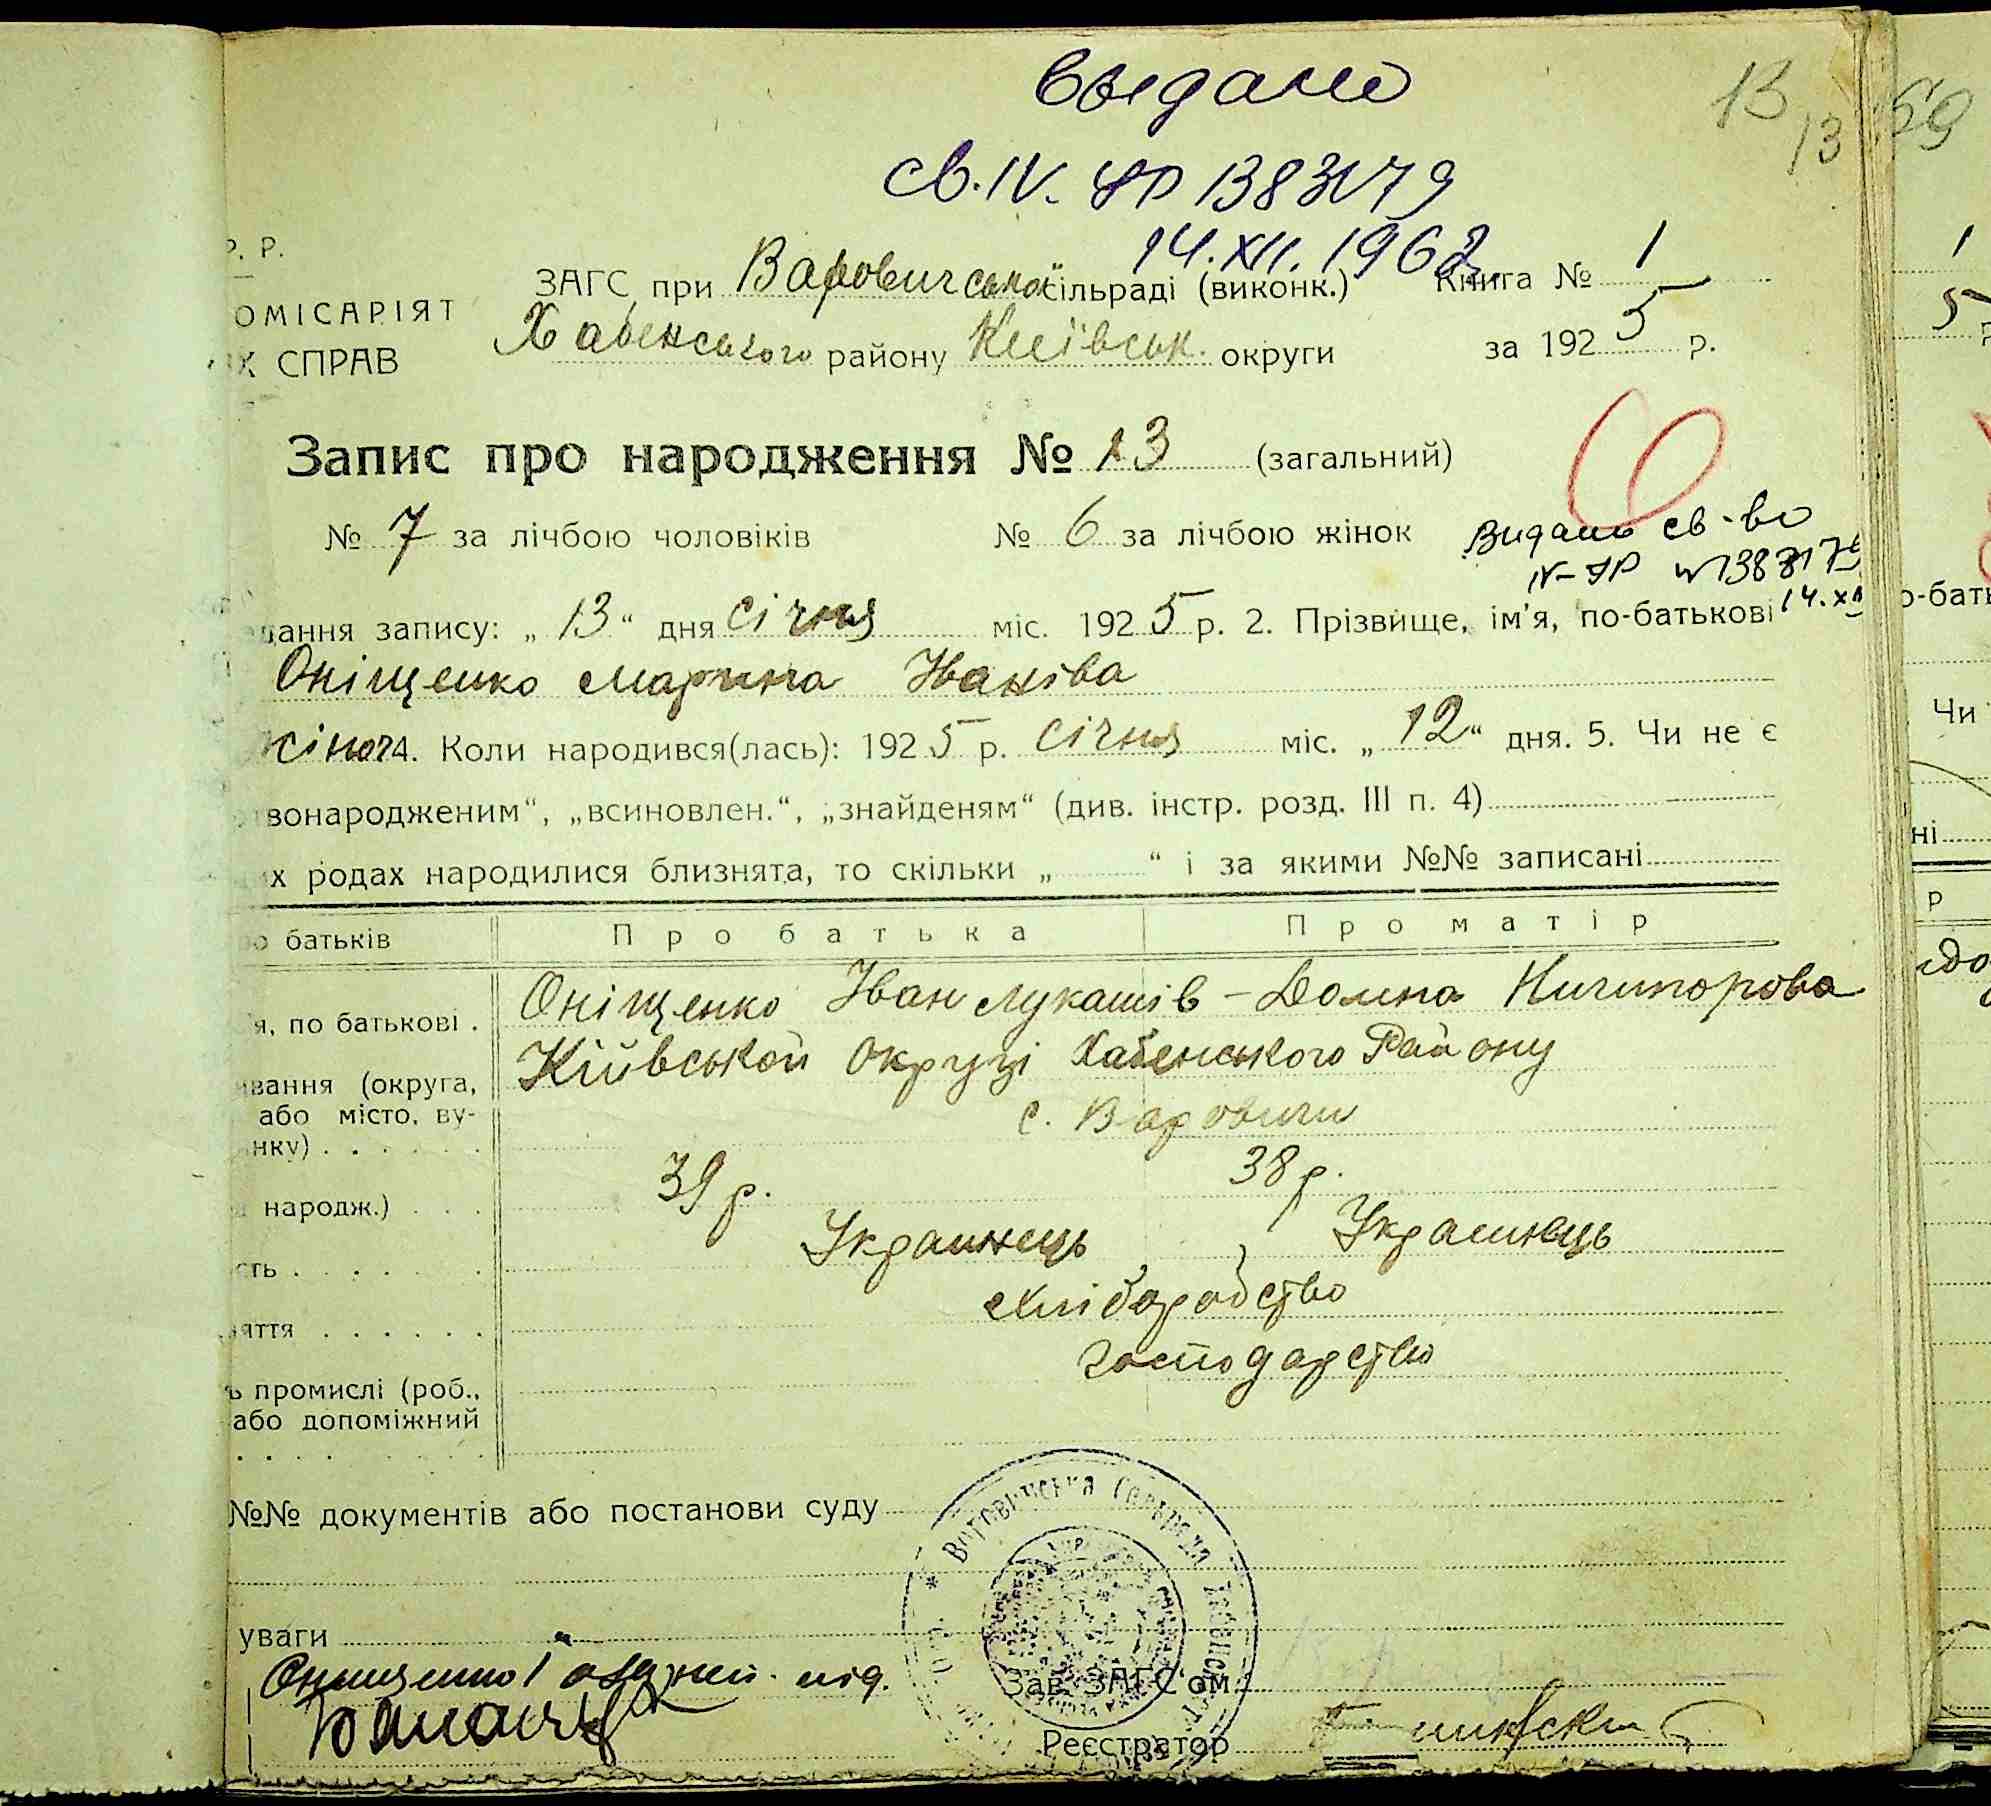 Выдано
13
13
69
св. IV. УР 1383179
14.XII.1962
Р. Р.
ЗАГС при Варовичської сільраді (виконк.) Книга № 1
ОМІСАРІЯТ
Хабенського району Київськ. округи за 1925 р.
Х СПРАВ
Запис про народження № 13 (загальний)
№ 7 за лічбою чоловіків № 6 за лічбою жінок
Видано св-во
IV-УР
14.XII
дання запису: „13“ дня січня міс. 1925 р. 2. Прізвище, ім'я, по-батькові
Оніщенко Марина Іванівa
4. Коли народився(лась): 1925 р. січня міс. „12“ дня. 5. Чи не є
вонародженим“, „всиновлен.“, „знайденям“ (див. інстр. розд. III п. 4)
х родах народилися близнята, то скільки „ “ і за якими №№ записані
батьків Про батька Про матір
я, по батькові . Оніщенко Іван Лукашів – Домна Ничипорова
Київськой округі Хабенського Району
вання (округа,
або місто, ву-
с. Варовичи
нку)
39 р. 38 р.
народж.)
Украинець Украинець
сть
хліборобство
яття
господарство
ь промислі (роб.,
або допоміжний
№№ документів або постанови суду
уваги
Зав. ЗАГС'ом
Реєстратор